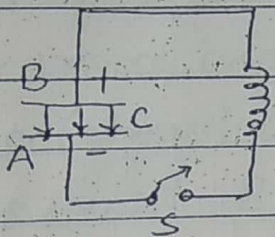 B +
C
A -
S